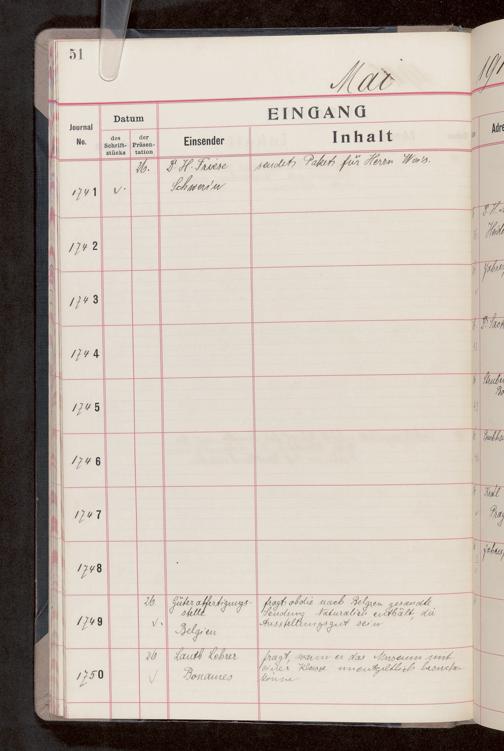 51
Mai
191
EINGANG
Datum
Journal
No.
des
Schrift-
stücks
der
Präsen-
tation
Einsender
Inhalt
Adre
1741
26.
Dr. H. Friese
sendet Pakete für Herrn
Schwerin
1742
1743
1744
1745
1746
1747
1748
1749
26.
Güterabfertigungs-
stelle
Belgien
fragt ob die nach Belgien gesandte
Sendung Naturalien enthält, die
Ausstellungsgut sein
1750
26.
Lehrer
fragt, wann er das Museum mit
seiner Klasse unentgeltlich besuchen
könne